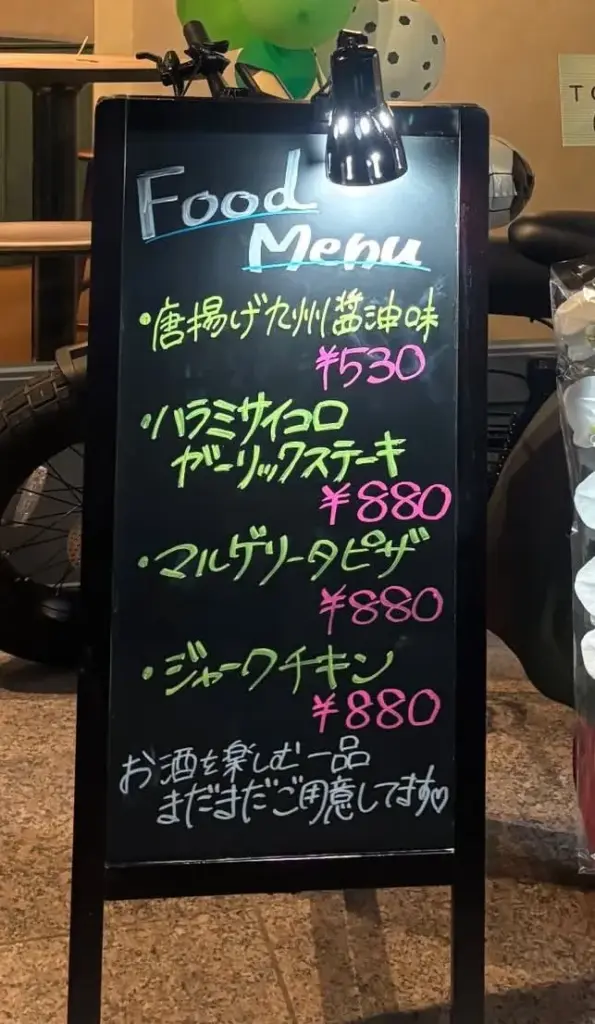 Food
Menu
・唐揚げ九州醤油味
¥530
・ハラミサイコロ
ガーリックステーキ
¥880
・マルゲリータピザ
¥880
・ジャークチキン
¥880
お酒を楽しむ一品
まだまだご用意してます♡